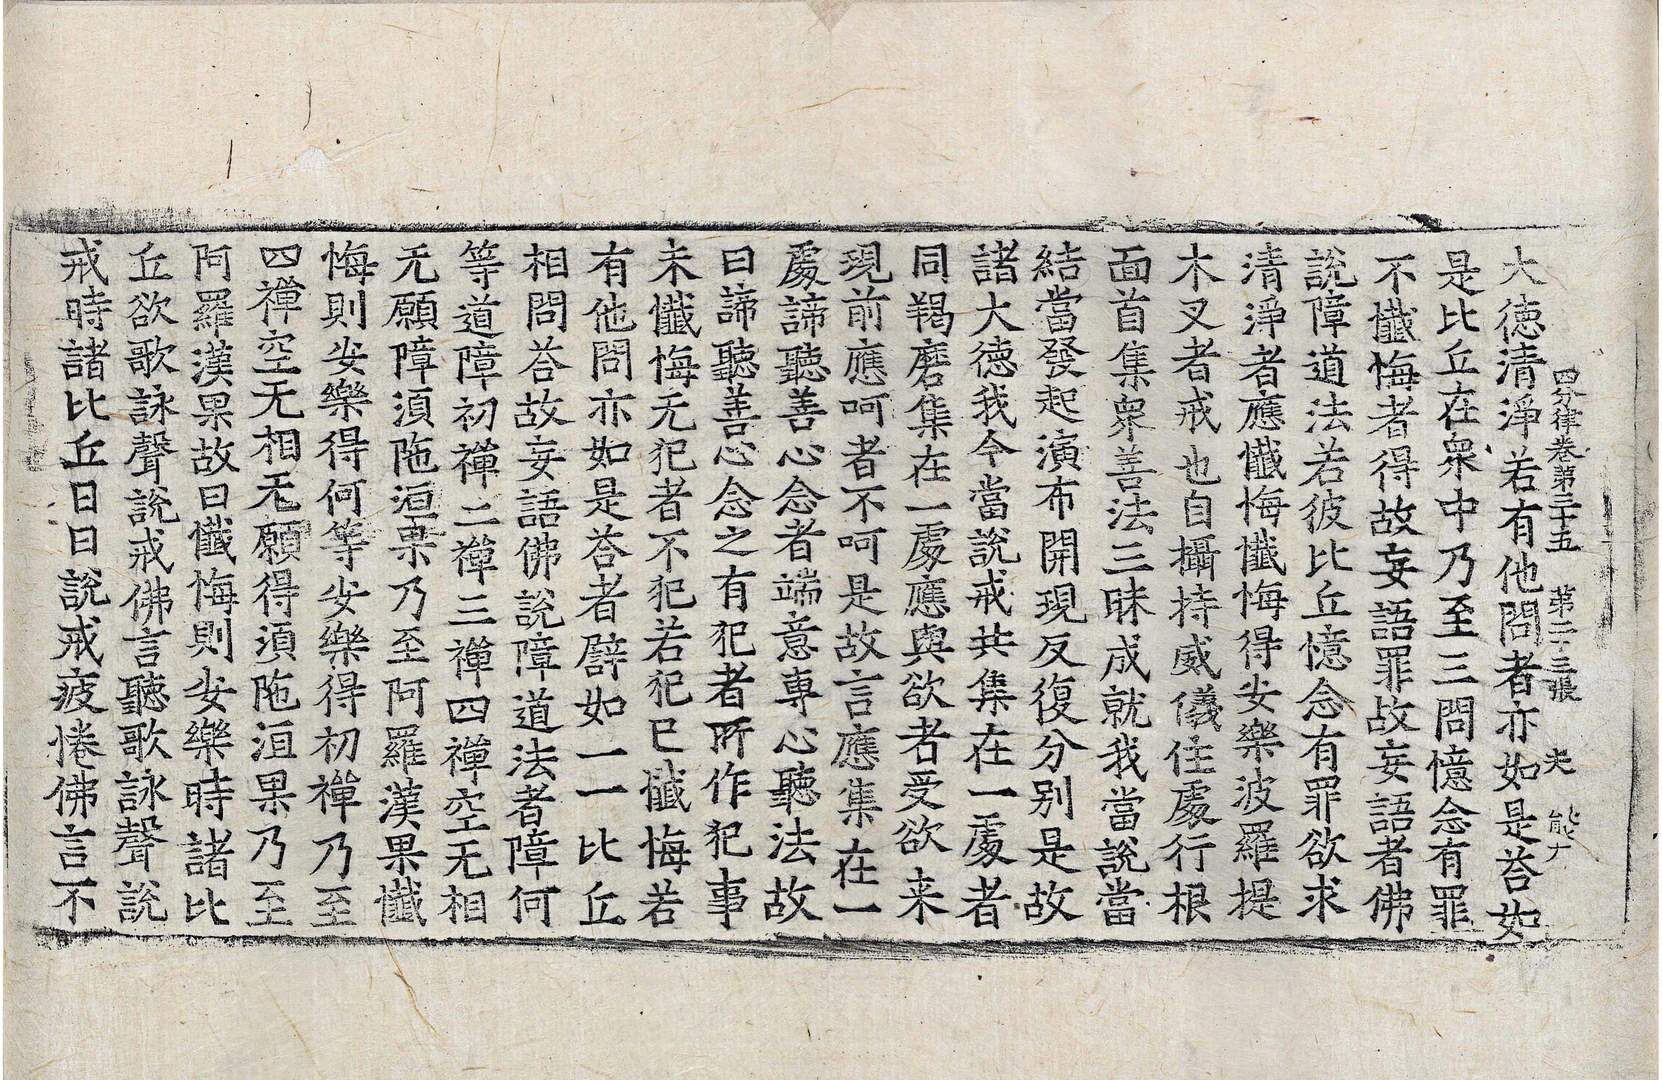 四分律卷第三十五 第二十三張 夫
大德清淨若有他問者亦如是荅如
是比丘在衆中乃至三問憶念有罪
不懺悔者得故妄語罪故妄語者佛
說障道法若彼比丘憶念有罪欲求
清淨者應懺悔懺悔得安樂波羅提
木叉者戒也自攝持威儀住處行根
面首集衆善法三昧成就我當說當
結當發起演布開現反復分別是故
諸大德我今當說戒共集在一處者
同羯磨集在一處應與欲者受欲来
現前應呵者不呵是故言應集在一
處諦聽善心念者端意專心聽法故
曰諦聽善心念之有犯者所作犯事
未懺悔无犯者不犯若犯已懺悔若
有他問亦如是荅者譬如一一比丘
相問荅故妄語佛說障道法者障何
等道障初禪二禪三禪四禪空无相
无願障湏陁洹果乃至阿羅漢果懺
悔則安樂得何等安樂得初禪乃至
四禪空无相无願得湏陁洹果乃至
阿羅漢果故曰懺悔則安樂時諸比
丘欲歌詠聲說戒佛言聽歌詠聲說
戒時諸比丘日日說戒疲惓佛言不